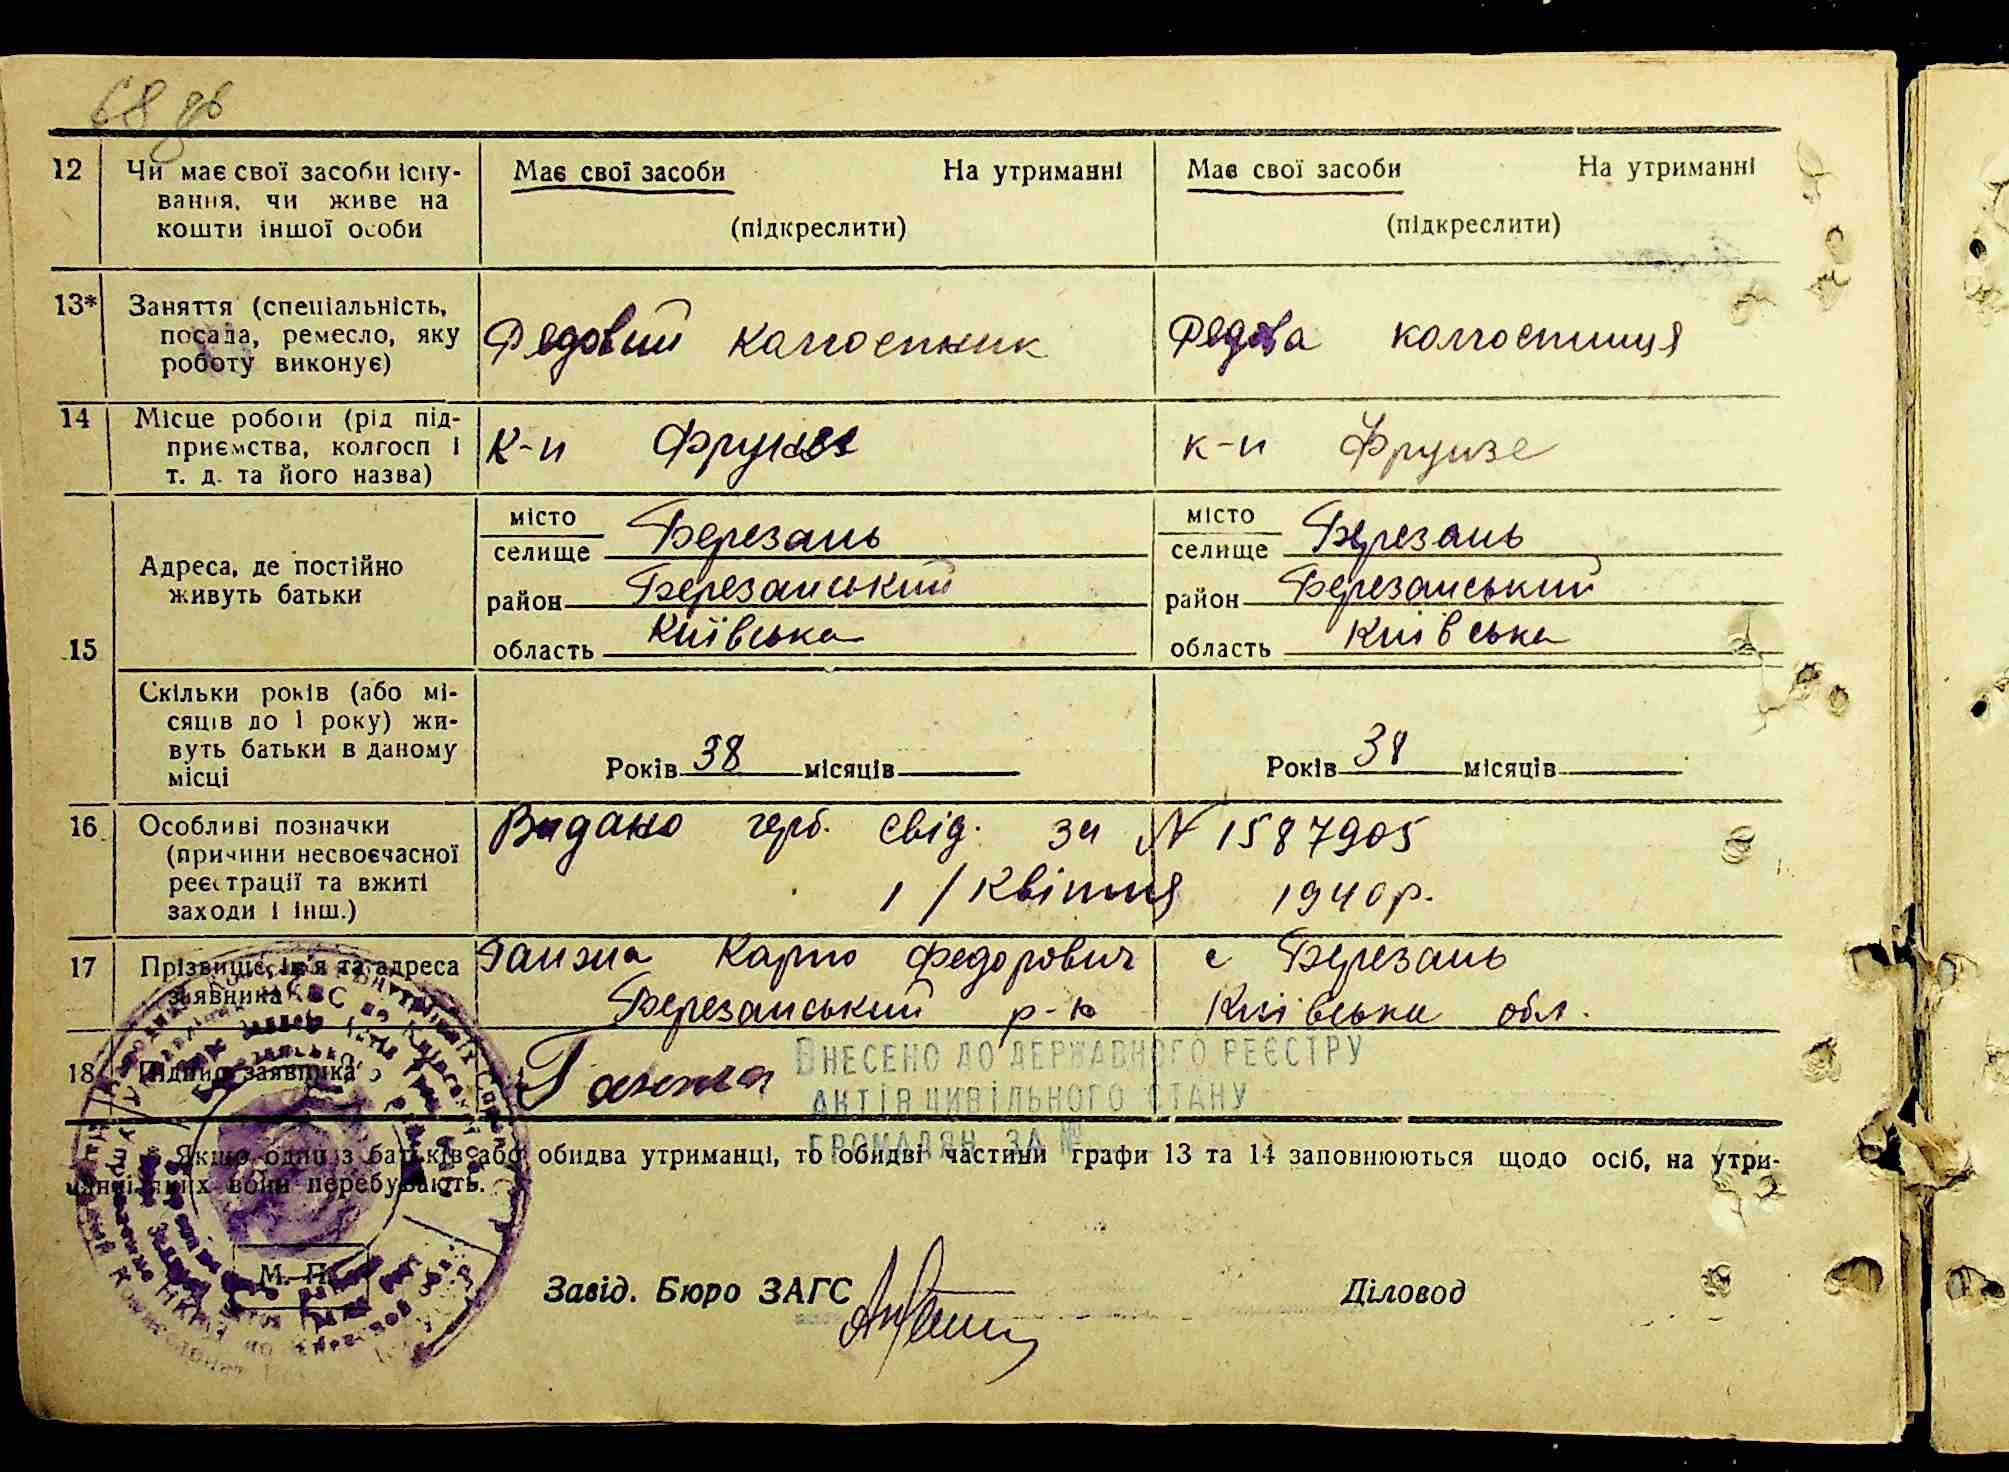 68 зв
12 Чи має свої засоби існу-
вання, чи живе на
кошти іншої особи
Має свої засоби На утриманні
(підкреслити)
Має свої засоби На утриманні
(підкреслити)
13* Заняття (спеціальність,
посада, ремесло, яку
роботу виконує)
Рядовий колгоспник
Рядова колгоспниця
14 Місце роботи (рід під-
приємства, колгосп і
т. д. та його назва)
к-п Фрунзе
к-п Фрунзе
15 Адреса, де постійно
живуть батьки
місто
селище Березань
район Березанський
область Київська
місто
селище Березань
район Березанський
область Київська
Скільки років (або мі-
сяців до 1 року) жи-
вуть батьки в даному
місці
Років 38 місяців
Років 38 місяців
16 Особливі позначки
(причини несвоєчасної
реєстрації та вжиті
заходи і інш.)
Видано герб. свід. за № 1587905
1/Квітня 1940 р.
17 Прізвище, ім'я та адреса
заявника
Ганжа Карпо Федорович с Березань
Березанський р-н Київська обл.
18 Підпис заявника
Ганжа
Внесено до державного реєстру
актів цивільного стану
громадян за №
* Якщо один з батьків або обидва утриманці, то обидві частини графи 13 та 14 заповнюються щодо осіб, на утри-
манні яких вони перебувають.
М. П.
Завід. Бюро ЗАГС
Діловод